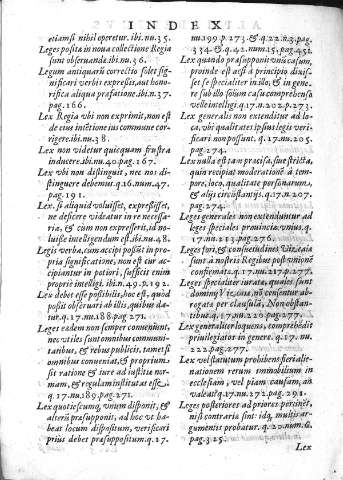 INDEX
etiamsi nihil operetur. ibi. nu. 35.
Leges posita in noua collectione Regia
sunt obseruandæ. ibi. nu. 36.
Legum antiquarū correctio solet sig-
nificari verbis expressis, aut hono-
rifica aliqua præfatione. ibi. n. 37.
pag. 166.
Lex Regia vbi non exprimit, non est
de eius intētione ius commune cor-
rigere. ibi. nu. 38.
Lex non videtur quicquam frustra
inducere. ibi. nu. 40. pag. 167.
Lex vbi non distinguit, nec nos di-
stinguere debemus. q. 16. num. 47.
pag. 191.
Lex, si aliquid voluisset, expressisset,
ne deficere videatur in re necessa-
ria, & cùm non expresserit, id no-
luisse intelligendum est. ibi. nu. 48.
Legis verba, cum accipi possint in pro-
pria significatione, non est cur ac-
cipiantur in potiori, sufficit enim
propriè intelligi. ibi. n. 49. p. 192.
Lex debet esse possibilis, hoc est, quod
possit obseruari ab illis, quibus da-
tur. q. 17. nu. 188. pag. 271.
Leges eædem non semper conueniunt,
nec vtiles sunt omnibus communi-
tatibus, & rebus publicis, tametsi
omnibus conueniat, & proprium
sit ratione & iure ad iustitiæ nor-
mam, & regulam institutas esse.
q. 17. nu. 189. pag. 271.
Lex quotiescumq; vnum disponit, &
alterū præsupponit, ad hoc vt ha-
beat locum dispositum, verificari
prius debet præsuppositum. q. 17.
nu. 199. p. 273. & q. 22. n. 3. pag.
334. & q. 42. num. 15. pag. 451.
Lex quando præsupponit vnū casum,
proinde est acsi à principio dixis-
set se specialiter in illo, & in gene-
re sub illo solùm casu comprehensū
velle intelligi. q. 17. n. 202. p. 273.
Lex generalis non extenditur ad lo-
ca, vbi qualitates ipsius legis veri-
ficari non possunt. q. 17. nu. 205.
pag. 274.
Lex nulla est tam præcisa, siue stricta,
quin recipiat moderationē à tem-
pore, loco, qualitate personarum,
& alijs circūstantijs. q. 17. n. 207.
pag. 274.
Leges generales non extenduntur ad
leges speciales prouinciæ vnius. q.
17. nu. 213. pag. 276.
Leges fori, & consuetudines
sunt à nostris Regibus
confirmatæ. q. 17. nu. 217. p. 277.
Leges specialiter iuratæ, quales sunt
censentur ab-
rogatæ per clausulā, Non obstan-
tibus. q. 17. nu. 220. pag. 277.
Lex generaliter loquens, comprehēdit
priuilegiator in genere. q. 17. nu.
222. pag. 277.
Lex vel statutum prohibens speciale
alienationem rerum immobilium in
ecclesiam, vel piam causam, an
valeat? q. 17. nu. 272. pag. 291.
Leges posteriores ad priores pertinēt,
nisi contraria sint: idq; multis ar-
gumentis probatur. q. 20. num. 6.
pag. 325.
Lex